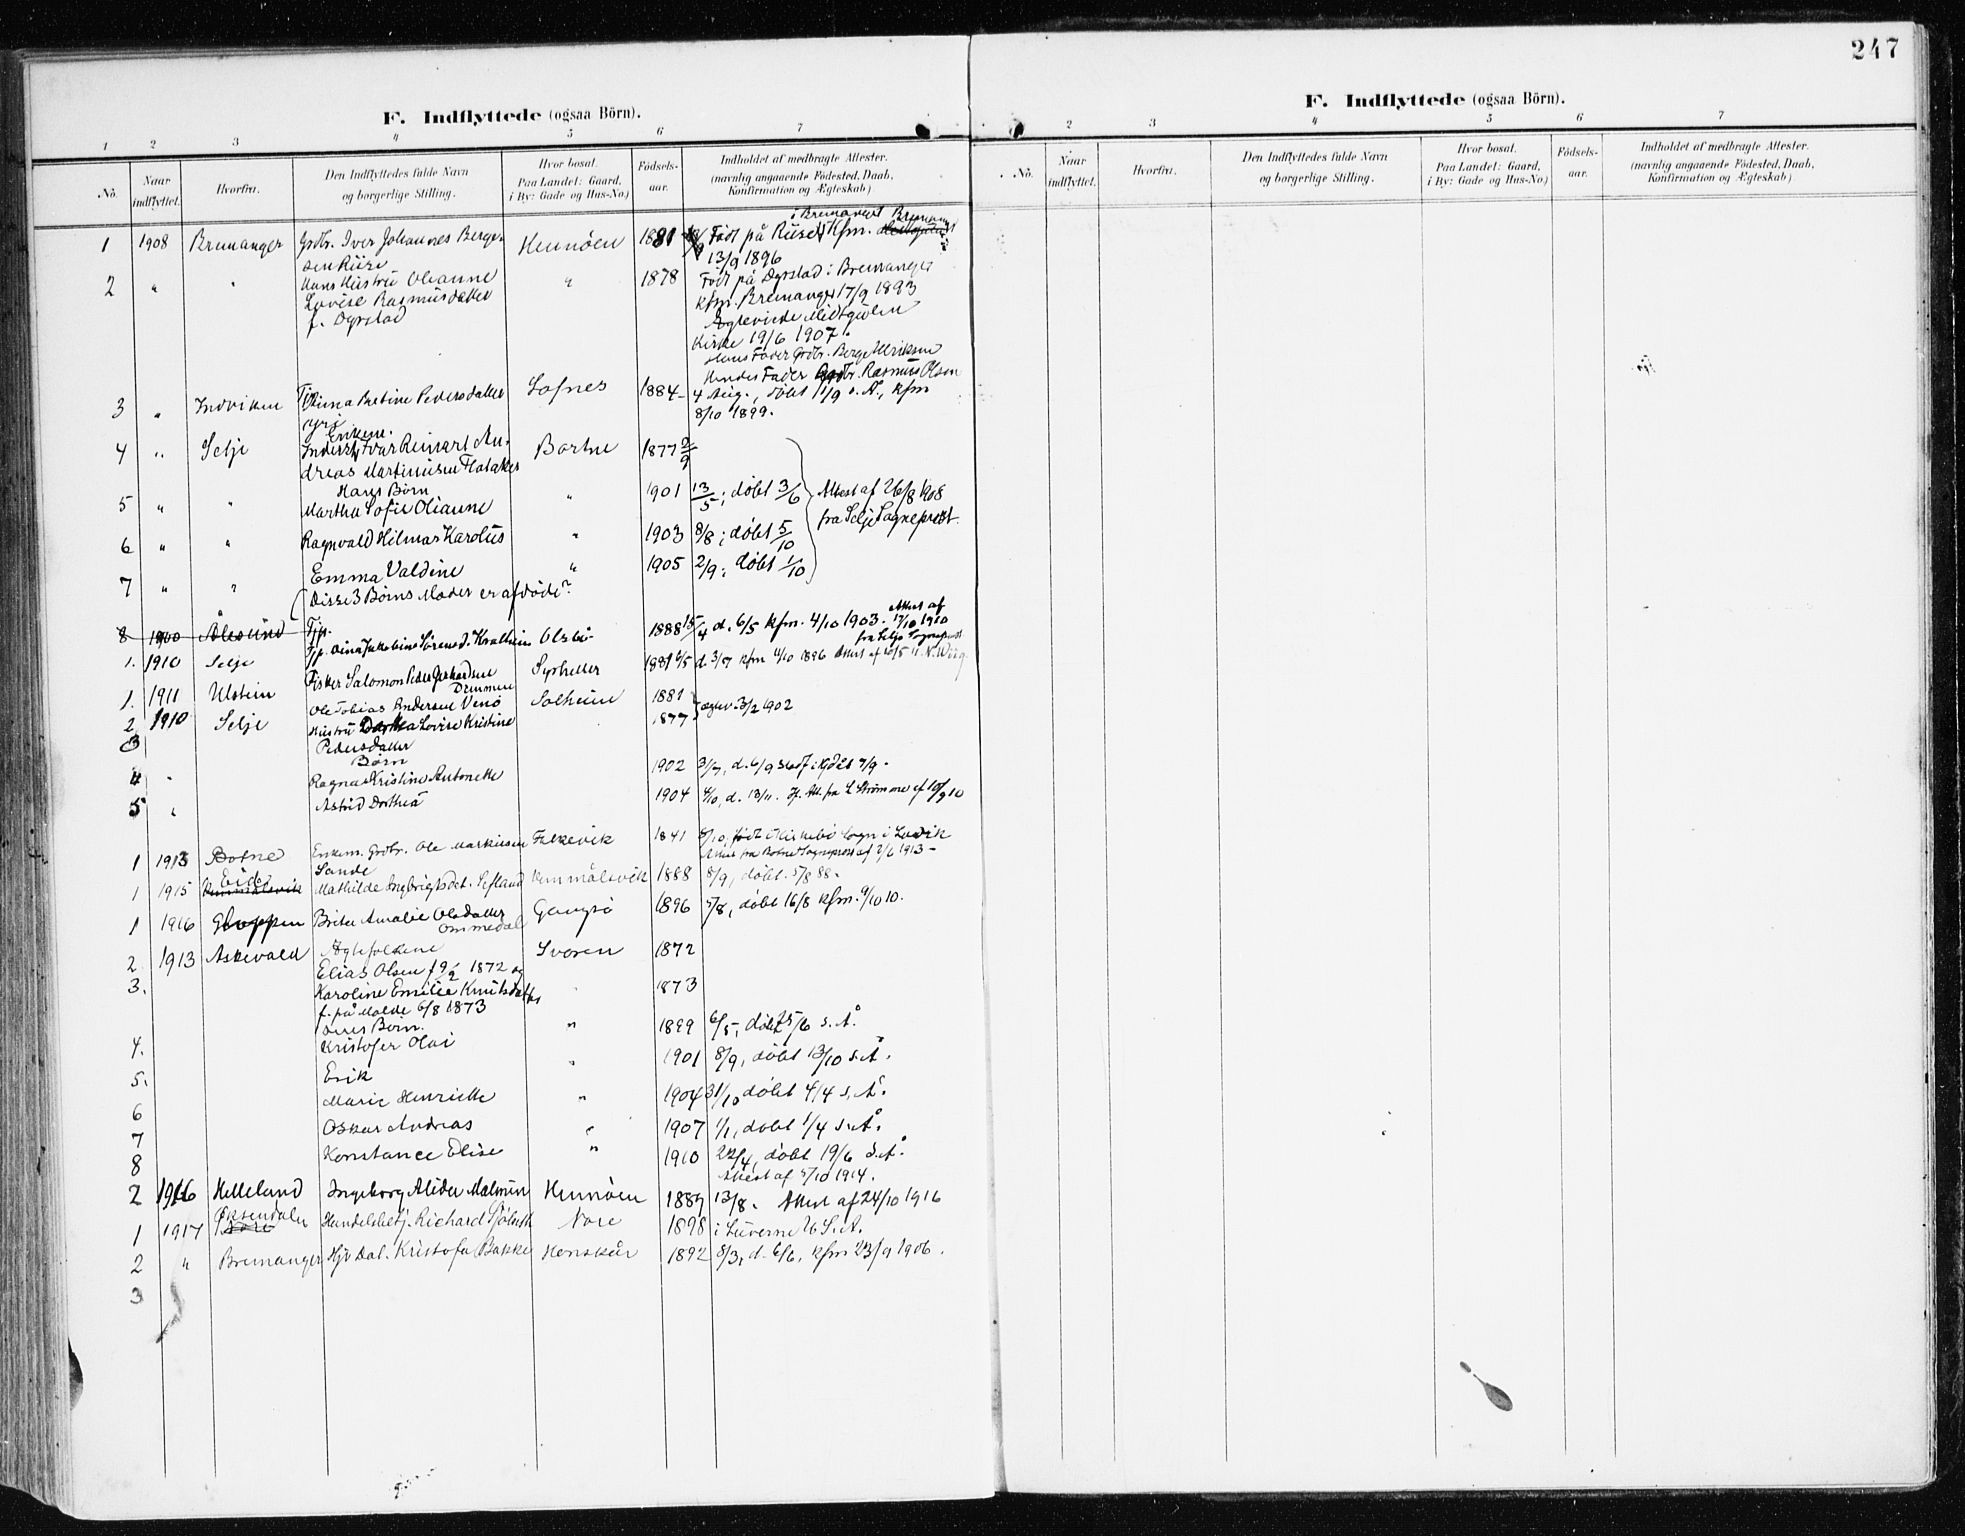 F. Indflyttede (ogsaa Börn).
1 2 3 4 5 6 7
No. Naar indflyttet. Hvorfra. Den Indflyttedes fulde Navn og borgerlige Stilling. Hvor bosat. Paa Landet: Gaard, i By: Gade og Hus-No.) Fødsels-aar. Indholdet af medbragte Attester. (navnlig angaaende Fødested, Daab, Konfirmation og Ægteskab)
i Bremanger Bremanger
1 1908 Bremanger Grdbr. Iver Johannes Berge- Hennøen 1881 Født på Riise Kfm.
sen Riise 13/9 1896
2 " " Hans Hustru Olianne " 1878 Født på Dyrstad i Bremanger
Lovise Rasmusdatter kfm. Bremanger 17/9 1893
f. Dyrstad Ægteviede Midtgulen
Kirke 19/6 1907.
Hans Fader Grdbr. Berge Ulriksen
Hendes Fader Grdbr. Rasmus Olsen
3 " Indviken Pedersdatter Sofnes 1884 4 Aug., døbt 11/9 s. A., kfm
8/10 1899.
Enkem.
4 " Selje Inderst Ivar Reinart An- Bortne 1877 2/9
dreas Martinusen Flataker
Hans Børn
5 " " Martha Sofie Olianne " 1901 13/5; døbt 3/6 Attest af 26/8 1908
6 " " Ragnvald Hilmar Karolus " 1903 8/8; døbt 5/10 fra Selje Sogneprest.
7 " " Emma Valdine " 1905 2/9; døbt 1/10
(Disse 3 Børns Moder er afdøde?
8 1900 Ålesund Tjp.
1. 1910 Selje Tjp. Dina Jakobine Sørensd. Kvalheim Olsbø 1888 15/4 d. 6/5 kfm. 4/10 1903. Attest af 17/10 1910
fra Selje Sogneprest
1. 1911 Ulstein Fisker Salomon Peder Gerhardsen Syrheller 1881 6/5 d. 3/7 kfm 4/10 1896
2 1910 Selje Ole Tobias Andersen Venø Solheim 1881 ægtev. 3/2 1902
3 Hustru Dorthea Lovise Kristine 1877
Pedersdatter
Børn
4 " Ragna Kristine Antonette 1902 3/7, d. 6/9
5 " Astrid Dorthea 1904 4/10, d. 13/11.
1 1913 Botne Enkem. Grdbr. Ole Markussen Falkevik 1841 8/10, født
Sande Attest fra Botne Sogneprest af 2/6 1913
1 1915 Eid Mathilde Ingbrigtsdet. Sefland Rimmålsvik 1888 8/9, døbt 5/8 88.
1 1916 Gloppen Brite Amalie Oledatter Gangsø 1896 5/8, døbt 16/8 kfm. 9/10 10.
Ommedal
2. 1913 Askevold Ægtefolkene Svoren 1872
Elias Olsen f 9/2 1872 og
3. Karoline Emilie Knutsdatter " 1873
f. på Molde 6/8 1873
deres Børn.
4. Kristofer Olai " 1899 6/5, døbt 25/6 s. Å.
5. Erik " 1901 8/9, døbt 13/10 s. Å.
6 Marie Henriette " 1904 31/10 døbt 4/4 s. Å.
7 Oskar Andreas " 1907 1/1, døbt 1/4 s. Å.
8 Konstance Elise " 1910 22/4, døbt 19/6 s. Å.
Attest af 5/10 1914.
2 1916 Helleland Ingeborg Alida Malmin Hennøen 1889 13/8. Attest af 24/10 1916
1 1917 Øksendalen Handelsbetj. Richard Sjølseth Nore 1898 i Luverne
2 " Bremanger Hjv Dat. Kristofa Bakke Henskår 1892 8/3, d. 6/6, kfm 23/9 1906.
3
247
F. Indflyttede (ogsaa Börn).
2 3 4 5 6 7
No. Naar indflyttet. Hvorfra. Den Indflyttedes fulde Navn og borgerlige Stilling. Hvor bosat. Paa Landet: Gaard, i By: Gade og Hus-No.) Fødsels-aar. Indholdet af medbragte Attester. (navnlig angaaende Fødested, Daab, Konfirmation og Ægteskab)